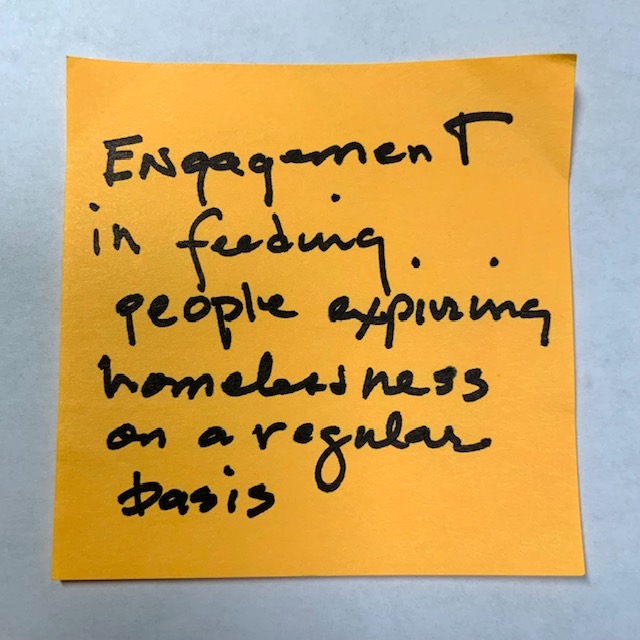 Engagement
in feeding
people expiring
homelessness
on a regular
basis